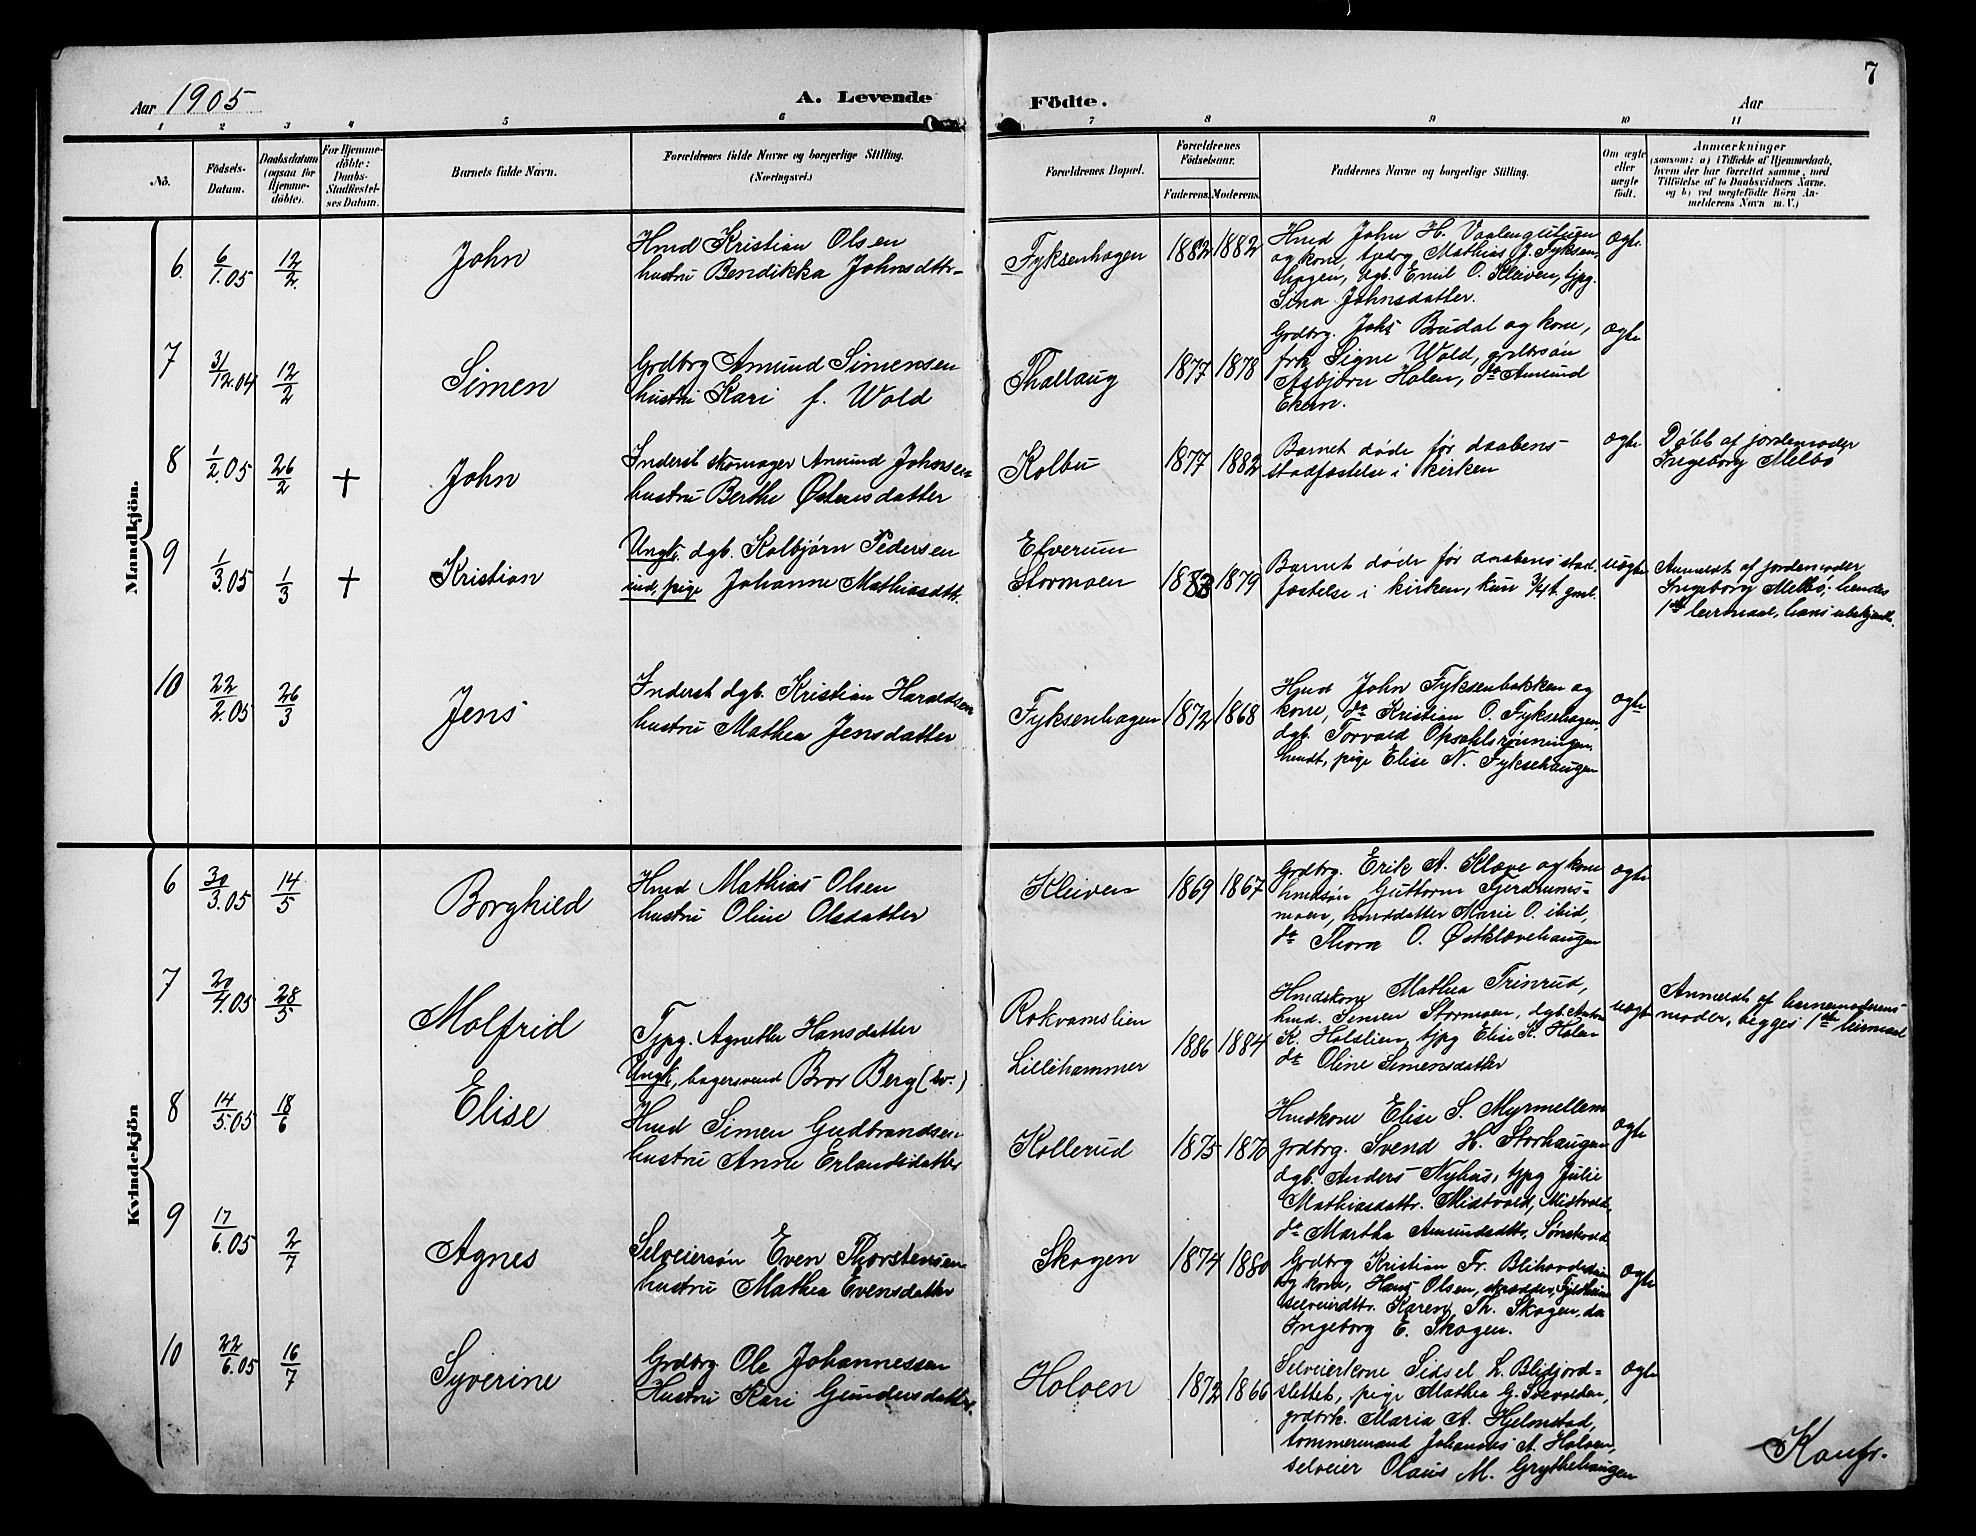 7
Aar 1905
A. Levende Födte.
Aar
1 2 3 4 5 6 7 8 9 10 11
No.
Födsels-Datum.
Daabsdatum (ogsaa for Hjemme-döbte).
For Hjemme-döbte: Daabs-Stadfæstel-ses Datum.
Barnets fulde Navn.
Forældrenes fulde Navne og borgerlige Stilling.
(Næringsvei.)
Forældrenes Bopæl.
Forældrenes Födselsaar.
Faderens. Moderens.
Faddernes Navne og borgerlige Stilling.
Om ægte eller uægte födt.
Anmærkninger
(saasom: a) i Tilfælde af Hjemmedaab,
hvem der har forrettet samme, med
Tilföielse af to Daabsvidners Navne,
og b) ved uægtefödte Börn An-
melderens Navn m. V.)
Mandkjön.
6 6/1.05 12/2 John
Hmd Kristian Olsen
hustru Bendikka Johnsdttr
Fyksenhagen 1882 1882
Hmd John H.
og kone, Mathias J. Fyksen-
hagen, dgb. Emil O. Kleiven, tjpg.
Sina Johnsdatter.
ægte
7 31/12.04 12/2 Simen
Grdbrg Amund Simensen
hustru Kari f. Wold
Thallaug 1877 1878
Grdbrg. Johs Brudal og kone,
frk Signe Wold, grdbrsön
Asbjörn Holen, do Amund
Ekern.
ægte
8 1/2.05 26/2 + John
Inderst skomager Amund Johnsen
hustru Berthe Östensdatter
Kolbu 1877 1882
Barnet döde för daabens-
stadfæstelse i kirken
ægte
Döbt af jordemoder
Ingeborg Melbö
9 1/3.05 1/3 + Kristian
Ungk. dgb. Kolbjörn Pedersen
ind. pige Johanne Mathiasdtr.
Elverum
Stormoen 1883 1879
Barnet döde för daabens stad
fæstelse i kirken, kun 3/4 t. gml.
uægte
Anmeldt af jordemoder
Ingeborg Melbö; hendes
1ste leermaal, hans ubekjendt.
10 22/2.05 26/3 Jens
Inderst dgb. Kristian Haraldsen
hustru Mathea Jensdatter
Fyksenhagen 1872 1868
Hmd John Fyksenbakken og
kone, do Kristian O. Fyksehagen,
dgb. Torvald Opsahlsrönningen,
hmdt, pige Elise N. Fyksehaugen
ægte
Kvindekjön
6 30/3.05 14/5 Borghild
Hmd Mathias Olsen
hustru Oline Olsdatter
Kleiven 1869 1867
Grdbrg. Erik A. Klæve og kone
hmdsön Guttorm Gjerdrums-
moen, hmddatter Marie O. ibid,
do Thora O. Östklævehaugen
ægte
7 20/4.05 28/5 Molfrid
Tjpg. Agnethe Hansdatter
Ungk. bagersvend Bror Berg (sv.)
Rokvamslien
Lillehammer 1886 1884
Hmdskone Mathea Trinrud,
hmd. Simen Stormoen, dgb. Anton
K. Holslien, tjpg Elise K. Holen
do Oline Simensdatter
uægte
Anmeldt af barnemoderens
moder, begges 1ste leirmaal
8 14/5.05 18/6 Elise
Hmd Simen Gudbrandsen
hustru Anne Erlandsdatter
Kollerud 1875 1870
Hmdkone Elise S. Myrmellem
grdbrg. Svend H. Storhaugen
dgb. Anders Nyhus, tjpg Julie
Mathiasdattr. Midtvold, Midtvold,
do Martha Amundsdttr, Sönstevold
ægte
9 17/6.05 2/7 Agnes
Selveiersön Even Thorstensen
hustru Mathea Evensdatter
Skogen 1874 1880
Grdbrg Kristian Fr.
og kone, Hans Olsen, skrædder,
selveierdtr. Karen Th. Skogen, do
Ingeborg E. Skogen.
ægte
10 22/6.05 16/7 Syverine
Grdbrg Ole Johannessen
Hustru Kari Gundersdatter.
Holoen 1872 1866
Selveierkone Sidsel L. Blifjord-
slettet, pige Mathea G.
grdbrk. Maria A. Hjelmstad,
tömmermand Johannes A. Holoen,
selveier Olaus M. Grythehaugen
ægte
Konfr.